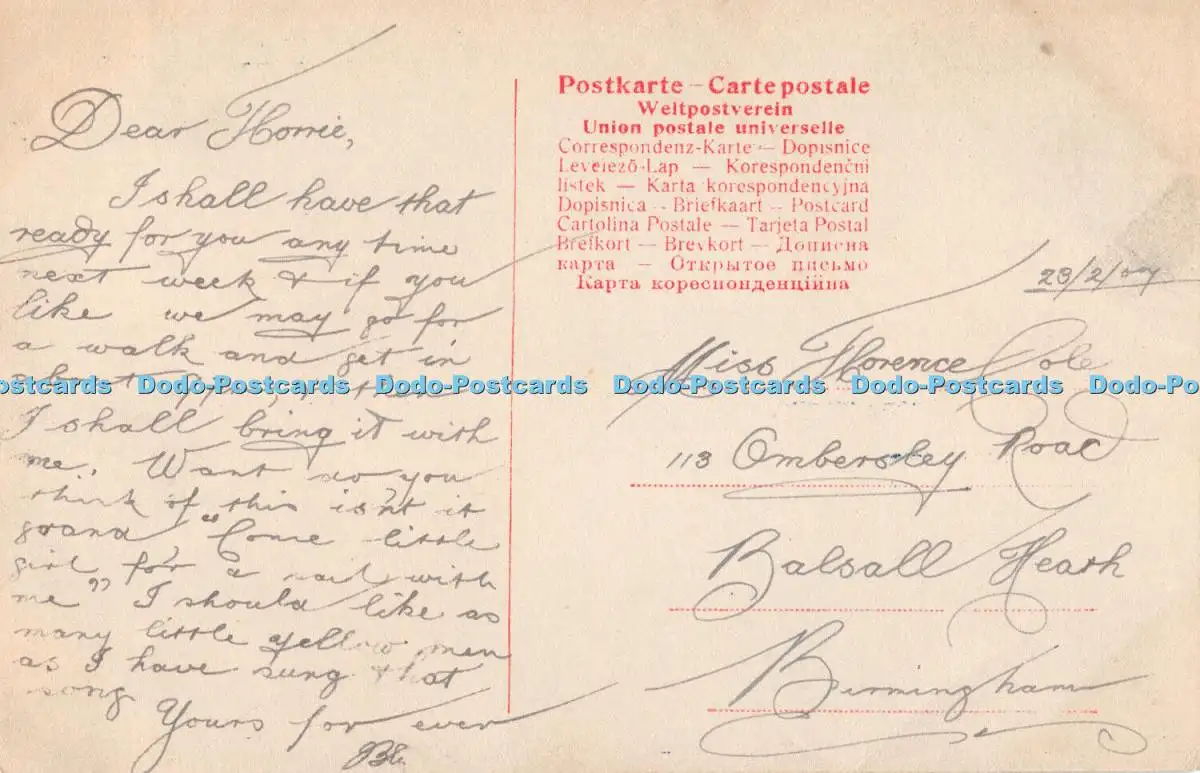 Dear Florrie,
I shall have that
ready for you any time
next week & if you
like we may go for
a walk and get in
about then
I shall bring it with
me. Want do you
think of this isn't it
grand "Come little
girl for a sail with
me" I should like as
many little yellow men
as I have sung that
song
Yours for ever
Postkarte – Carte postale
Weltpostverein
Union postale universelle
Correspondenz-Karte — Dopisnice
Levelező-Lap — Korespondenční
lístek — Karta korespondencyjna
Dopisnica — Briefkaart — Postcard
Cartolina Postale — Tarjeta Postal
Brefkort — Brevkort — Дописна
карта — Открытое письмо
Карта кореспонденційна
23/2/07
Miss Florence Cole
113 Ombersley Road
Balsall Heath
Birmingham
Dodo-Postcards Dodo-Postcards Dodo-Postcards Dodo-Postcards Dodo-Postcards